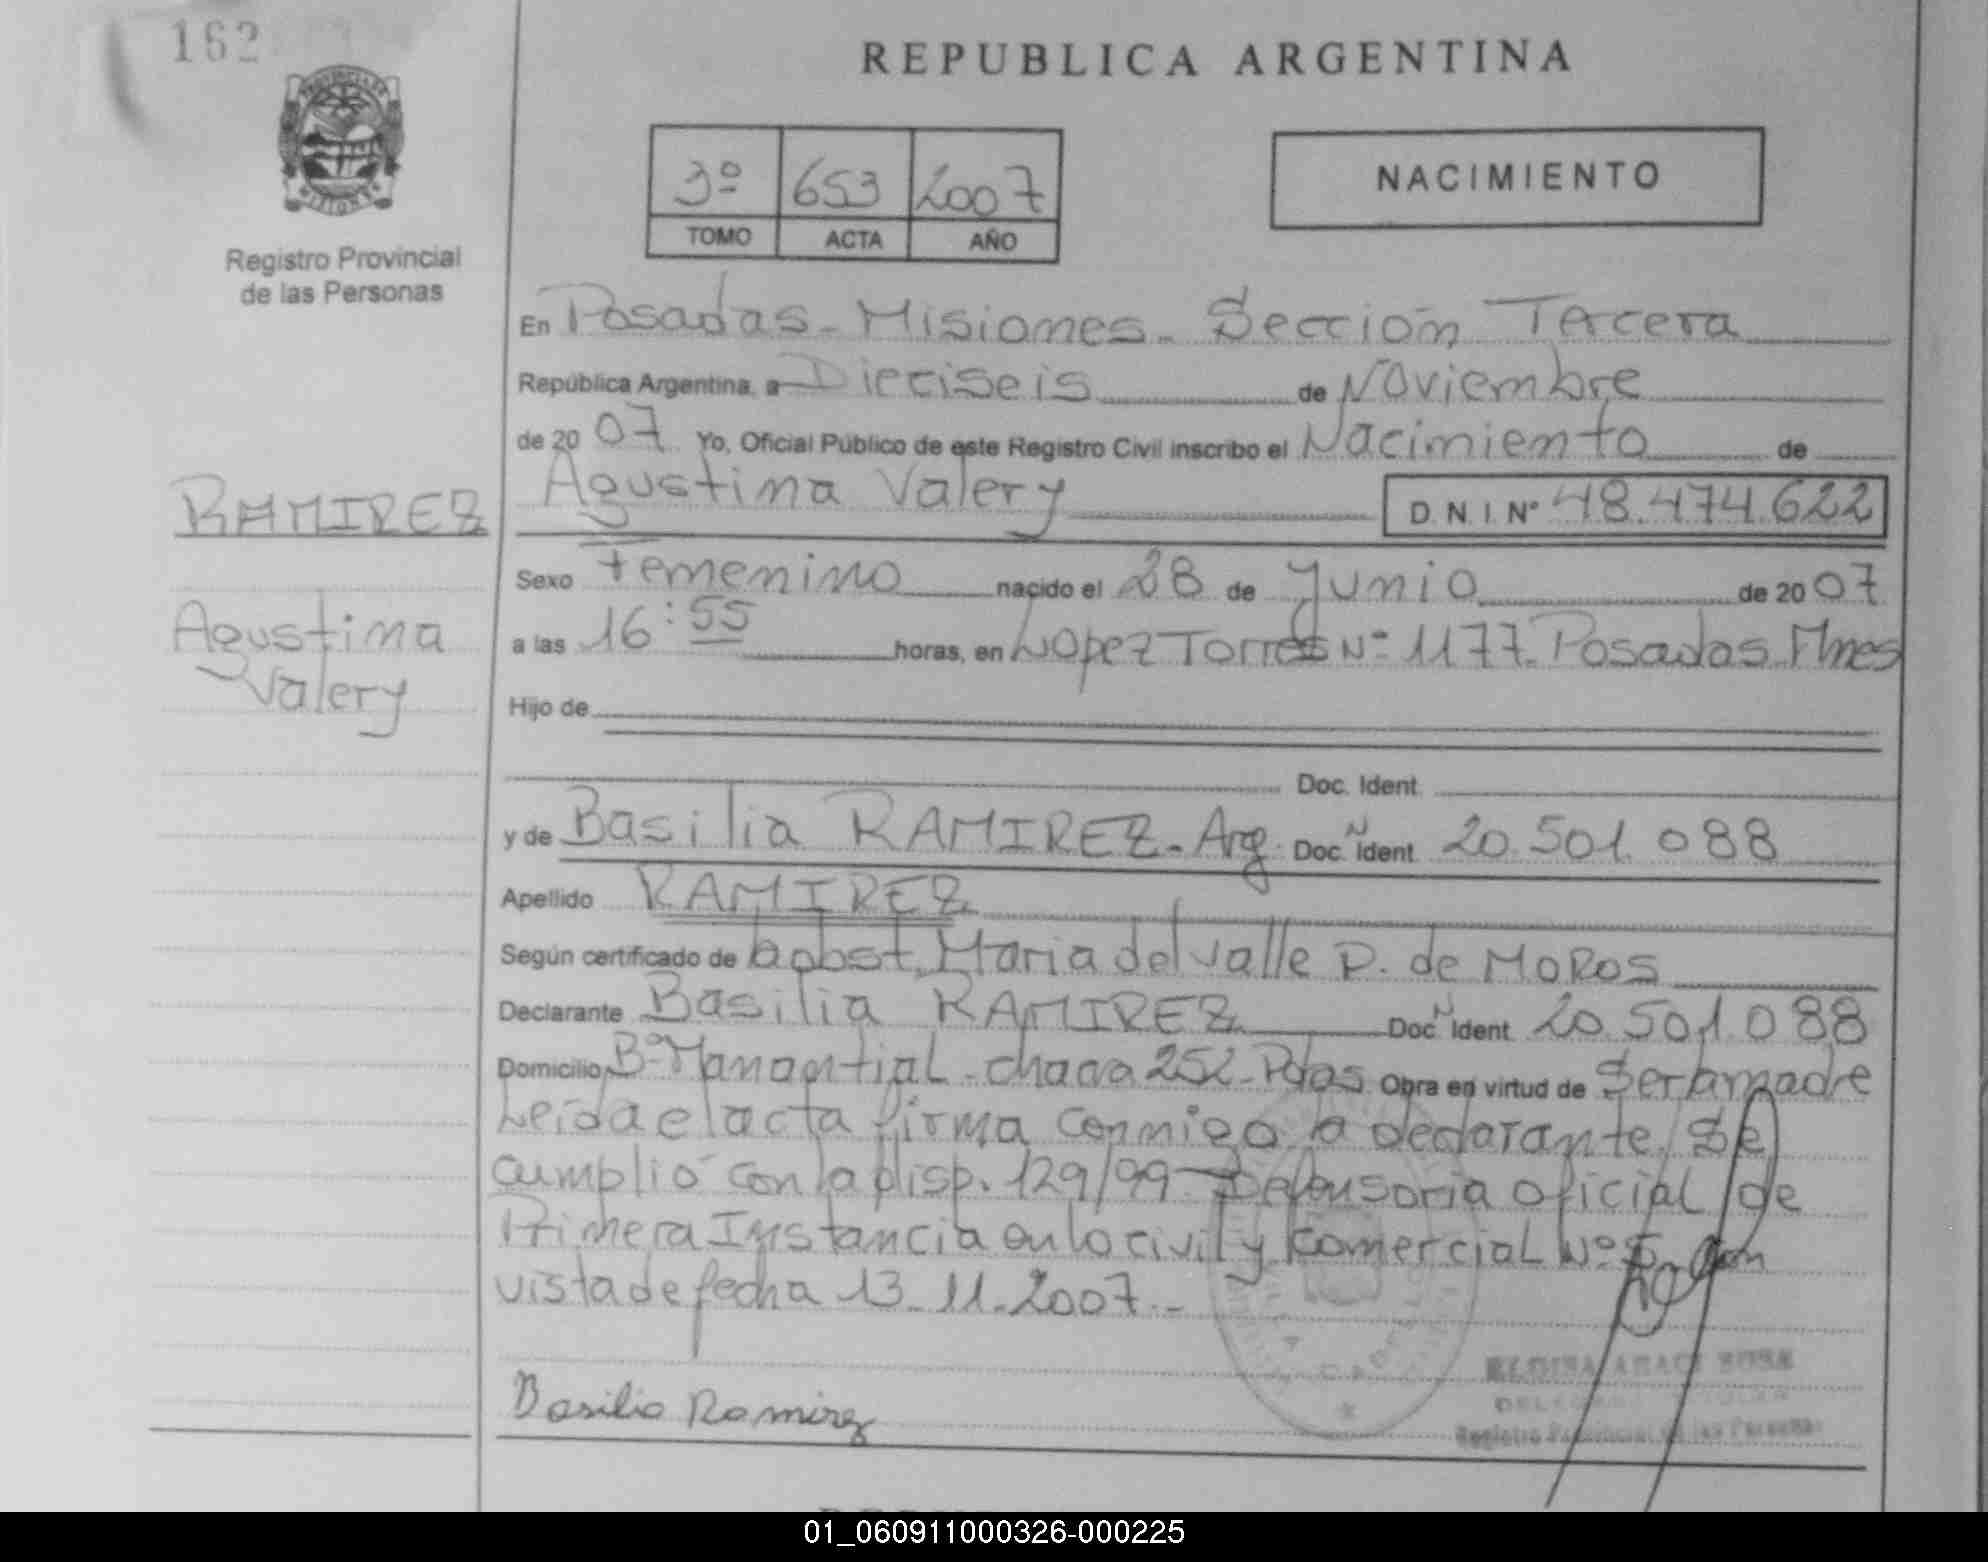 162
REPUBLICA ARGENTINA
3º 653 2007
TOMO ACTA AÑO
NACIMIENTO
Registro Provincial
de las Personas
En Posadas - Misiones - Sección Tercera
República Argentina, a Dieciseis de Noviembre
de 20 07 Yo, Oficial Público de este Registro Civil inscribo el Nacimiento de
RAMIREZ
Agustina Valery D.N.I. Nº 48.474.622
Sexo Femenino nacido el 28 de Junio de 20 07
Agustina
Valery
a las 16:55 horas, en Lopez Torres Nº 1177. Posadas Mnes
Hijo de
Doc. Ident.
y de Basilia RAMIREZ - Arg. Doc. N Ident. 20.501.088
Apellido RAMIREZ
Según certificado de obst. Maria del Valle P. de MOROS
Declarante Basilia RAMIREZ Doc. N Ident. 20.501.088
Domicilio Bº Manantial - chacra 252 - Pdas. Obra en virtud de Ser la madre
Leída el acta firma conmigo la declarante. Se
cumplió con la disp. 129/99 - Defensoria oficial de
Primera Instancia en lo civil y comercial Nº 5 con
vista de fecha 13-11-2007.-
Basilia Ramirez
Registro Provincial de las Personas
01_060911000326-000225